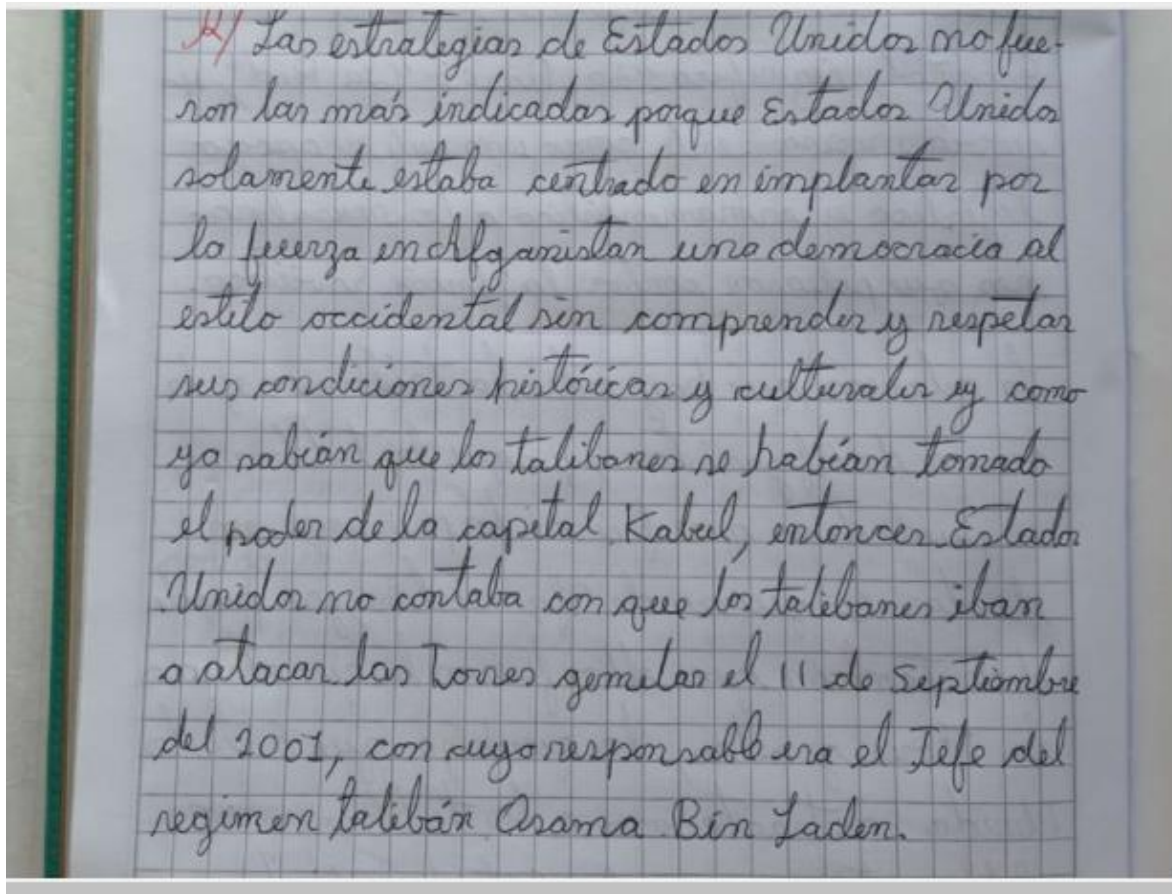 R/ Las estrategias de Estados Unidos no fue-
ron las más indicadas porque Estados Unidos
solamente estaba centrado en implantar por
la fuerza en Afganistan una democracia al
estilo occidental sin comprender y respetar
sus condiciones históricas y culturales y como
ya sabián que los talibanes se habían tomado
el poder de la capital Kabul, entonces Estados
Unidos no contaba con que los talibanes iban
a atacar las Torres gemelas el 11 de Septiembre
del 2001, con cuyo responsable era el Jefe del
regimen talibán Osama Bin Laden.